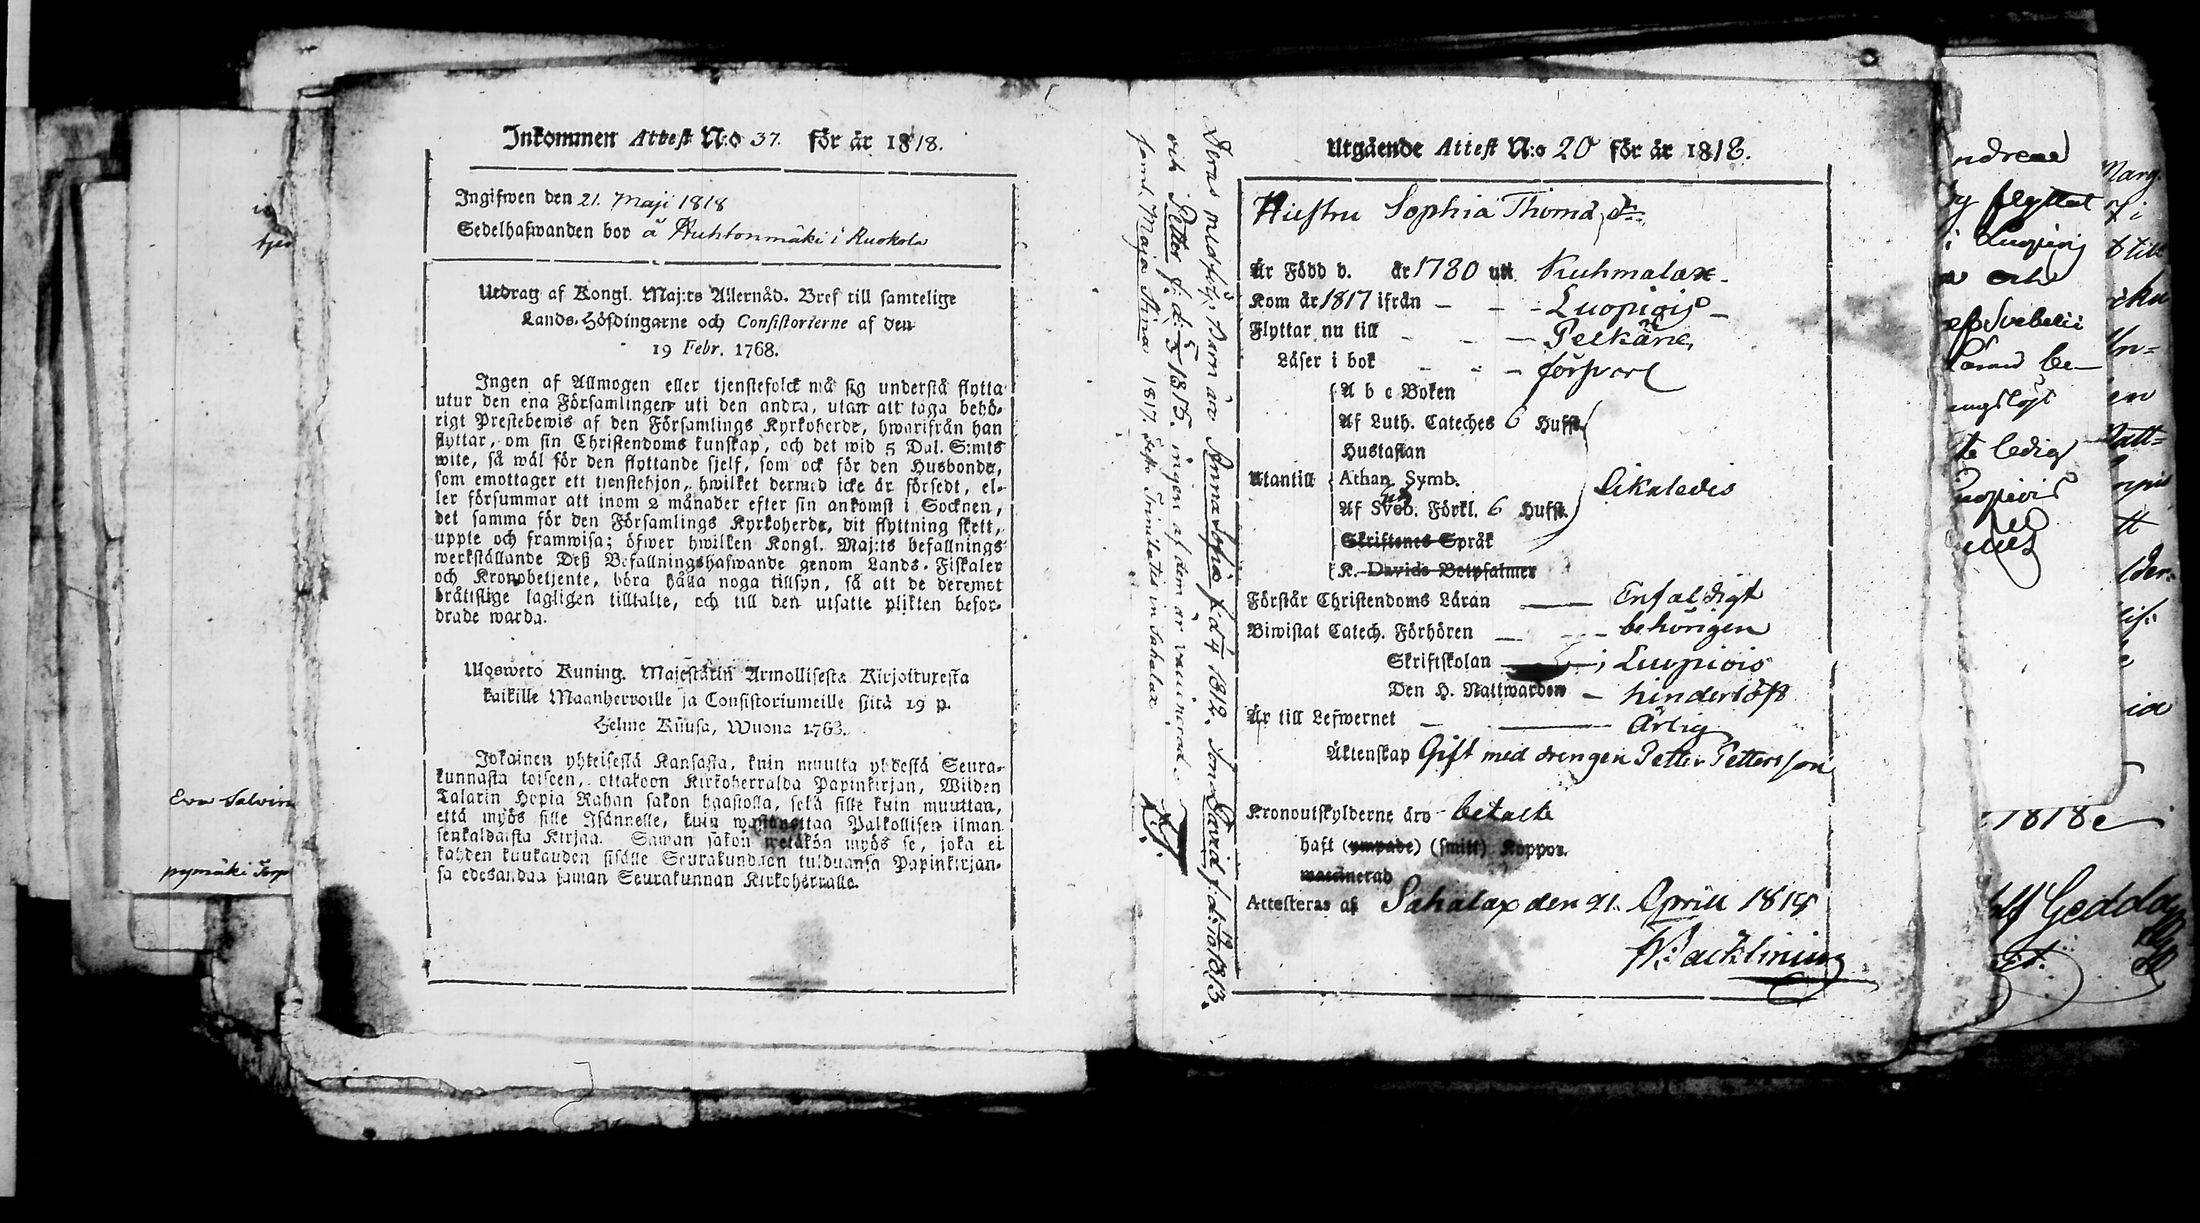 Inkommen Attest N:o 37. för år 1818.
Ingifwen den 21. Maji 1818
Sedelhafwanden bor å Huhtonmäki i Ruokola
Utdrag af Kongl. Maj:ts Allernåd. Bref till samtelige
Lands-Höfdingarne och Consistorierne af den
19 Febr. 1768.
Ingen af Allmogen eller tjenstefolck må sig understå flytta
utur den ena Församlingen uti den andra, utan att taga behö-
rigt Prestebewis af den Församlings Kyrkoherde, hwarifrån han
flyttar, om sin Christendoms kunskap, och det wid 5 Dal. S:mts
wite, så wäl för den flyttande sjelf, som ock för den Husbonde,
som emottager ett tjenstehjon, hwilket dermed icke är försedt, el-
ler försummar att inom 2 månader efter sin ankomst i Socknen,
det samma för den Församlings Kyrkoherde, dit flyttning skett,
uppte och framwisa; öfwer hwilken Kongl. Maj:ts befallnings
werkställande Deß Befallningshafwande genom Lands-Fiskaler
och Kronobetjente, böra hålla noga tillsyn, så att de deremot
bråttslige lagligen tilltalte, och till den utsatte plikten befor-
drade warda.
Ulosweto Kuning. Majestätin Armollisesta Kirjoituxesta
kaikille Maanherroille ja Consistoriumeille siitä 19 p.
Helme Kuusa, Wuona 1768.
Jokainen yhteisestä Kansasta, kuin muulta yhdestä Seura-
kunnasta toiseen, ottakoon Kirkoherralda Papinkirjan, Wiiden
Talarin Hopia Rahan sakon haastolla, sekä sille kuin muuttan,
että myös sille Isännelle, kuin wastanottaa Palkollisen ilman
senkaldaista Kirjaa. Saman sakon wetäkön myös se, joka ei
kahden kuukauden sisälle Seurakundaan tulduansa Papinkirjan-
sa edesandaa saman Seurakunnan Kirkoherralle.
Deras medfölj. barn äro Anna Sofia f. d. 1812. Son David f. d. 1813.
och Petter f. d. 1815. ingen af dem är vaccinerad.
samt Maja Stina 1817. Festo Trinitatis in Sahalax
Utgående Attest N:o 20 för år 1818.
Hustru Sophia Thomæ dr.
Är Född d. år 1780 uti Kuhmalax
Kom år 1817 ifrån - - - Luopiois
Flyttar nu till - - - Pelkäne,
Läser i bok - - - försvarl
A b c Boken
Af Luth. Cateches 6 Hufst.
Hustaflan
Utantill Athan. Symb. likaledes
Af Sveb. Förkl. 6 Hufst.
Skriftenes Språk
K. Davids Botpsalmer
Förstår Christendoms Läran — Enfaldigt
Biwistat Catech. Förhören - - - behörigen
Skriftskolan i Luopiois
Den H. Nattwarden - hinderlöst
Är till Lefwernet - — Ärlig
Äktenskap Gift med drengen Petter Pettersson
Kronoutskylderne äro betalte
haft (ympade) (smitt) Koppor.
waccinerad
Attesteras af Sahalax den 21. April 1818
Wacklinius
Eva Salvin
pymäki Torp
ndreae
flyttat
i Luopiois
och
te ledig
Luopiois
1818
Gedda